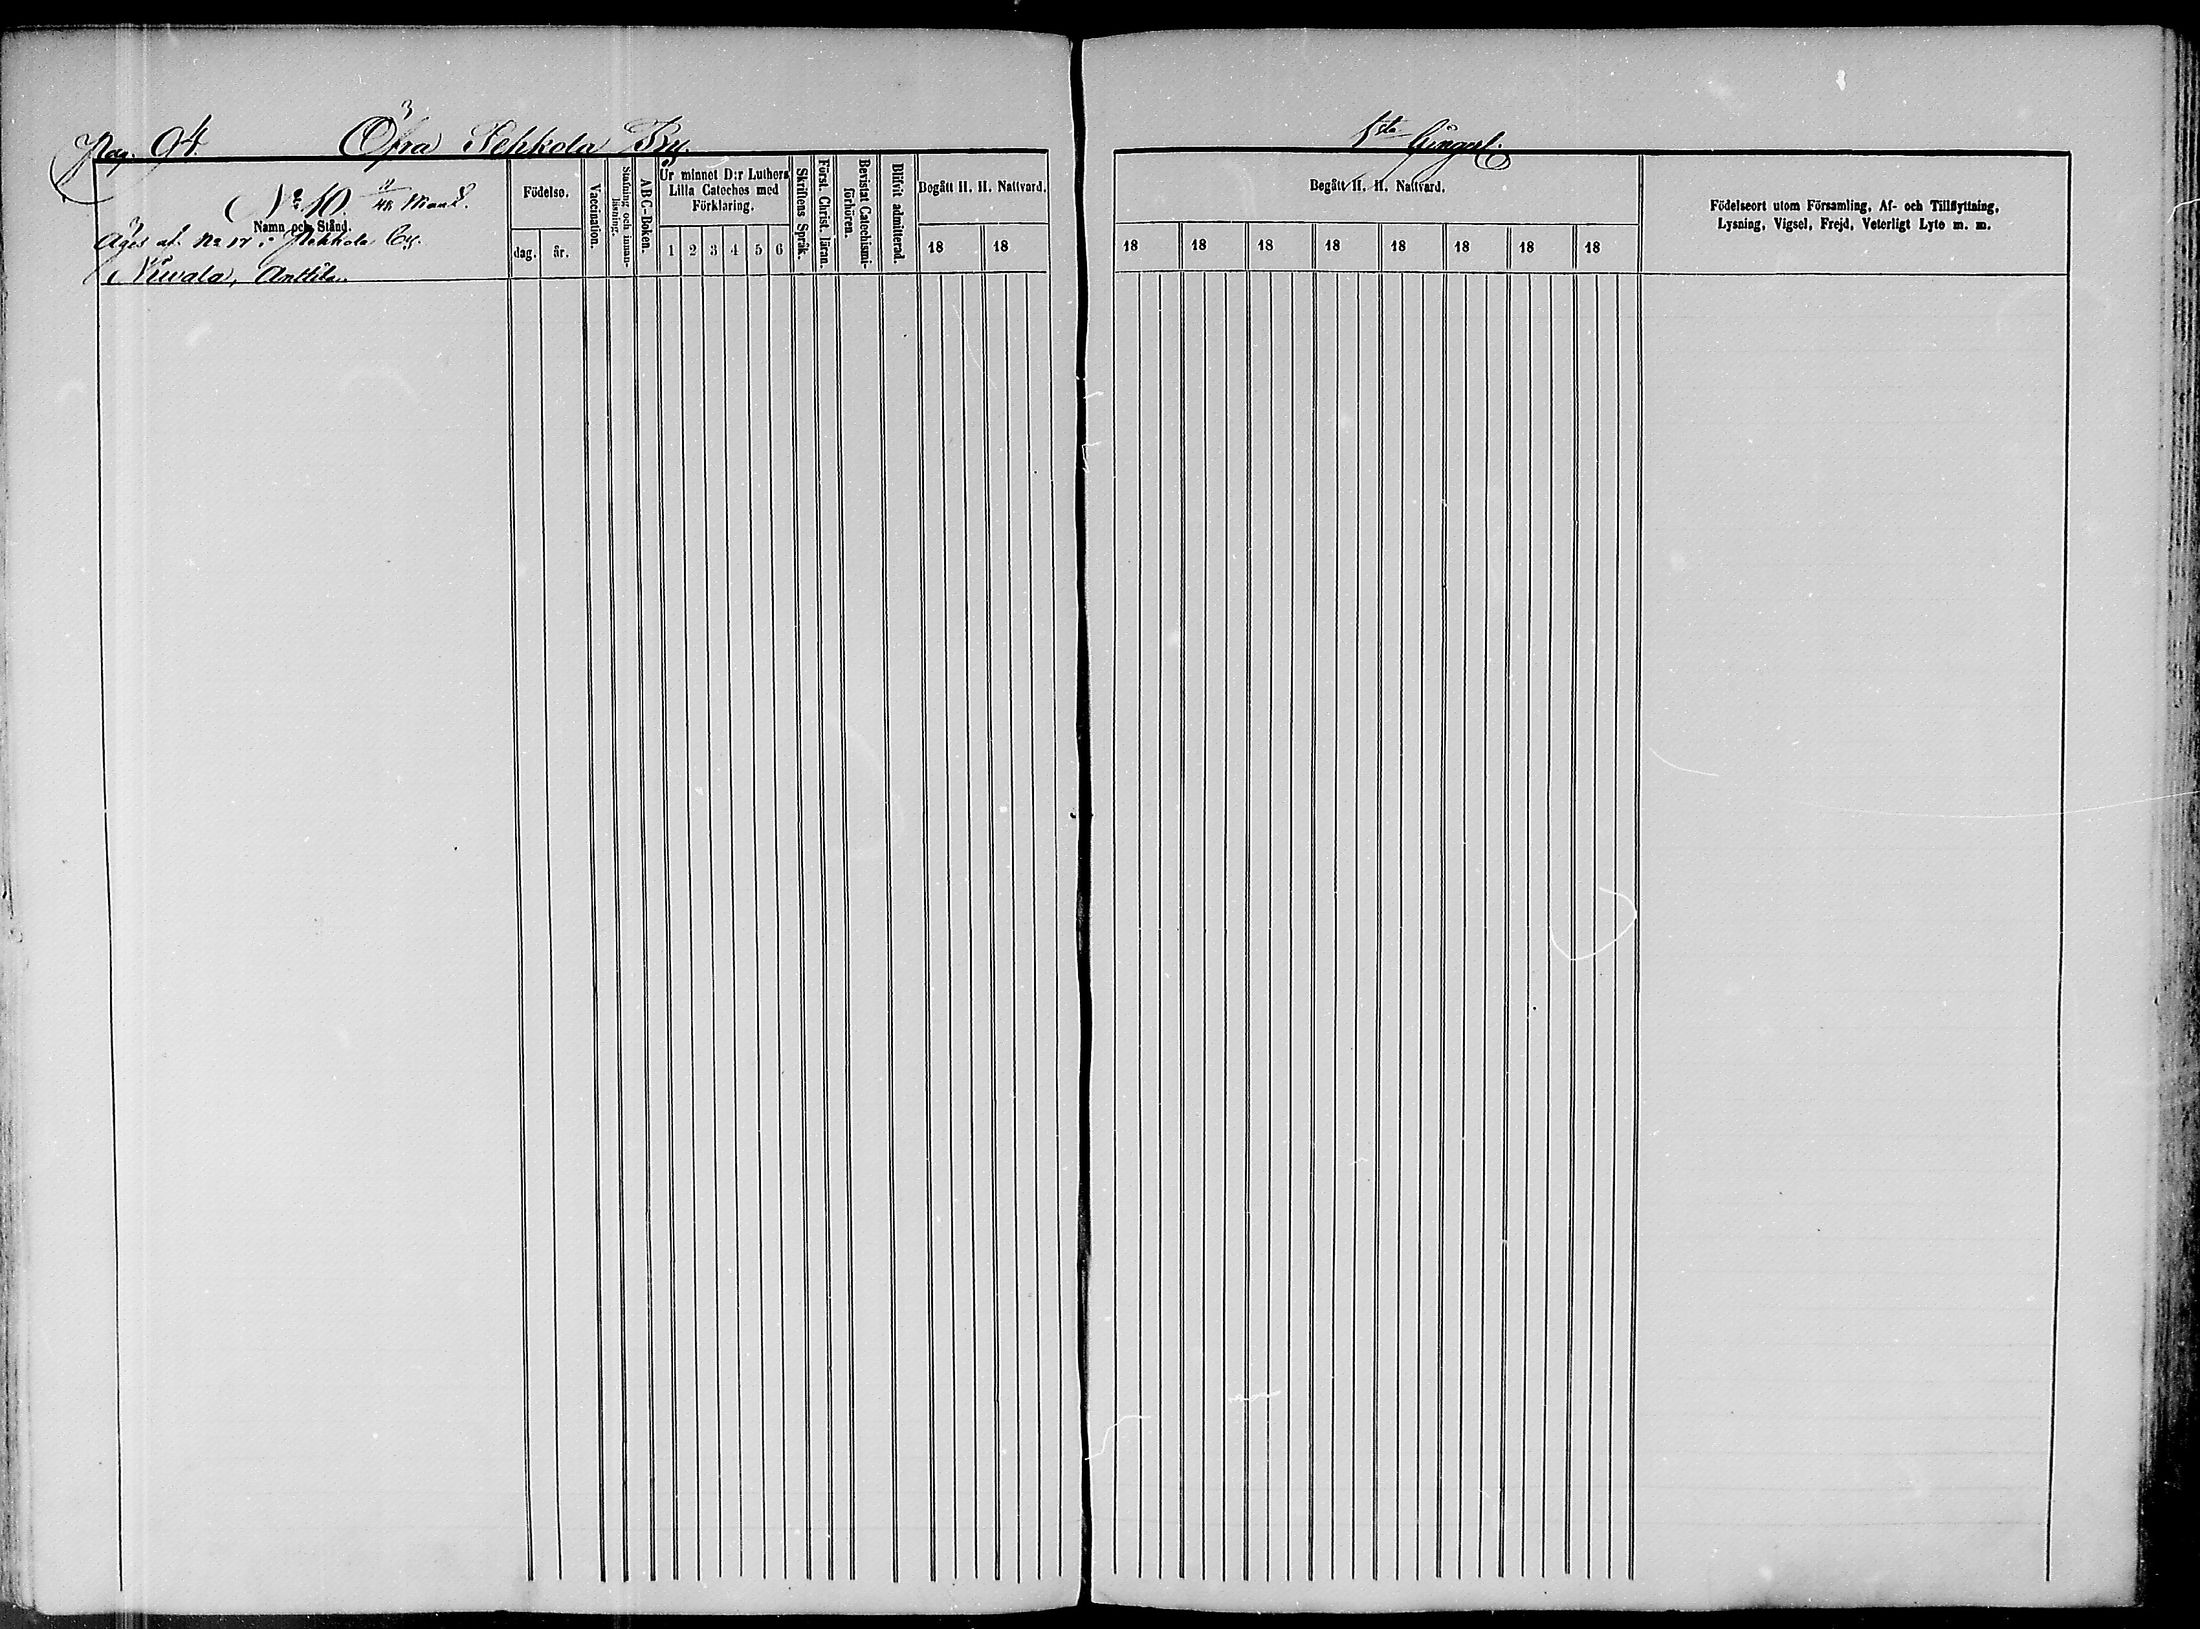 Pag. 94. Öfra Pehkola By.
No 10. 11/48 Mant.
Namn och Stånd.
Äges af No 17 i Pehkola by.
Niwala, Anttila.
Födelse.
dag. år.
Vaccination.
Stafning och innan-
läsning.
ABC-Boken.
Ur minnet D:r Luthers
Lilla Cateches med
Förklaring.
1 2 3 4 5 6
Skriftens Språk.
Först. Christ. läran.
Bevistat Catechismi-
förhören.
Blifvit admitterad.
Begått H. H. Nattvard.
18 18
1sta
Begått H. H. Nattvard.
18 18 18 18 18 18 18 18
Födelseort utom Församling, Af- och Tillflyttning,
Lysning, Vigsel, Frejd, Veterligt Lyte m. m.